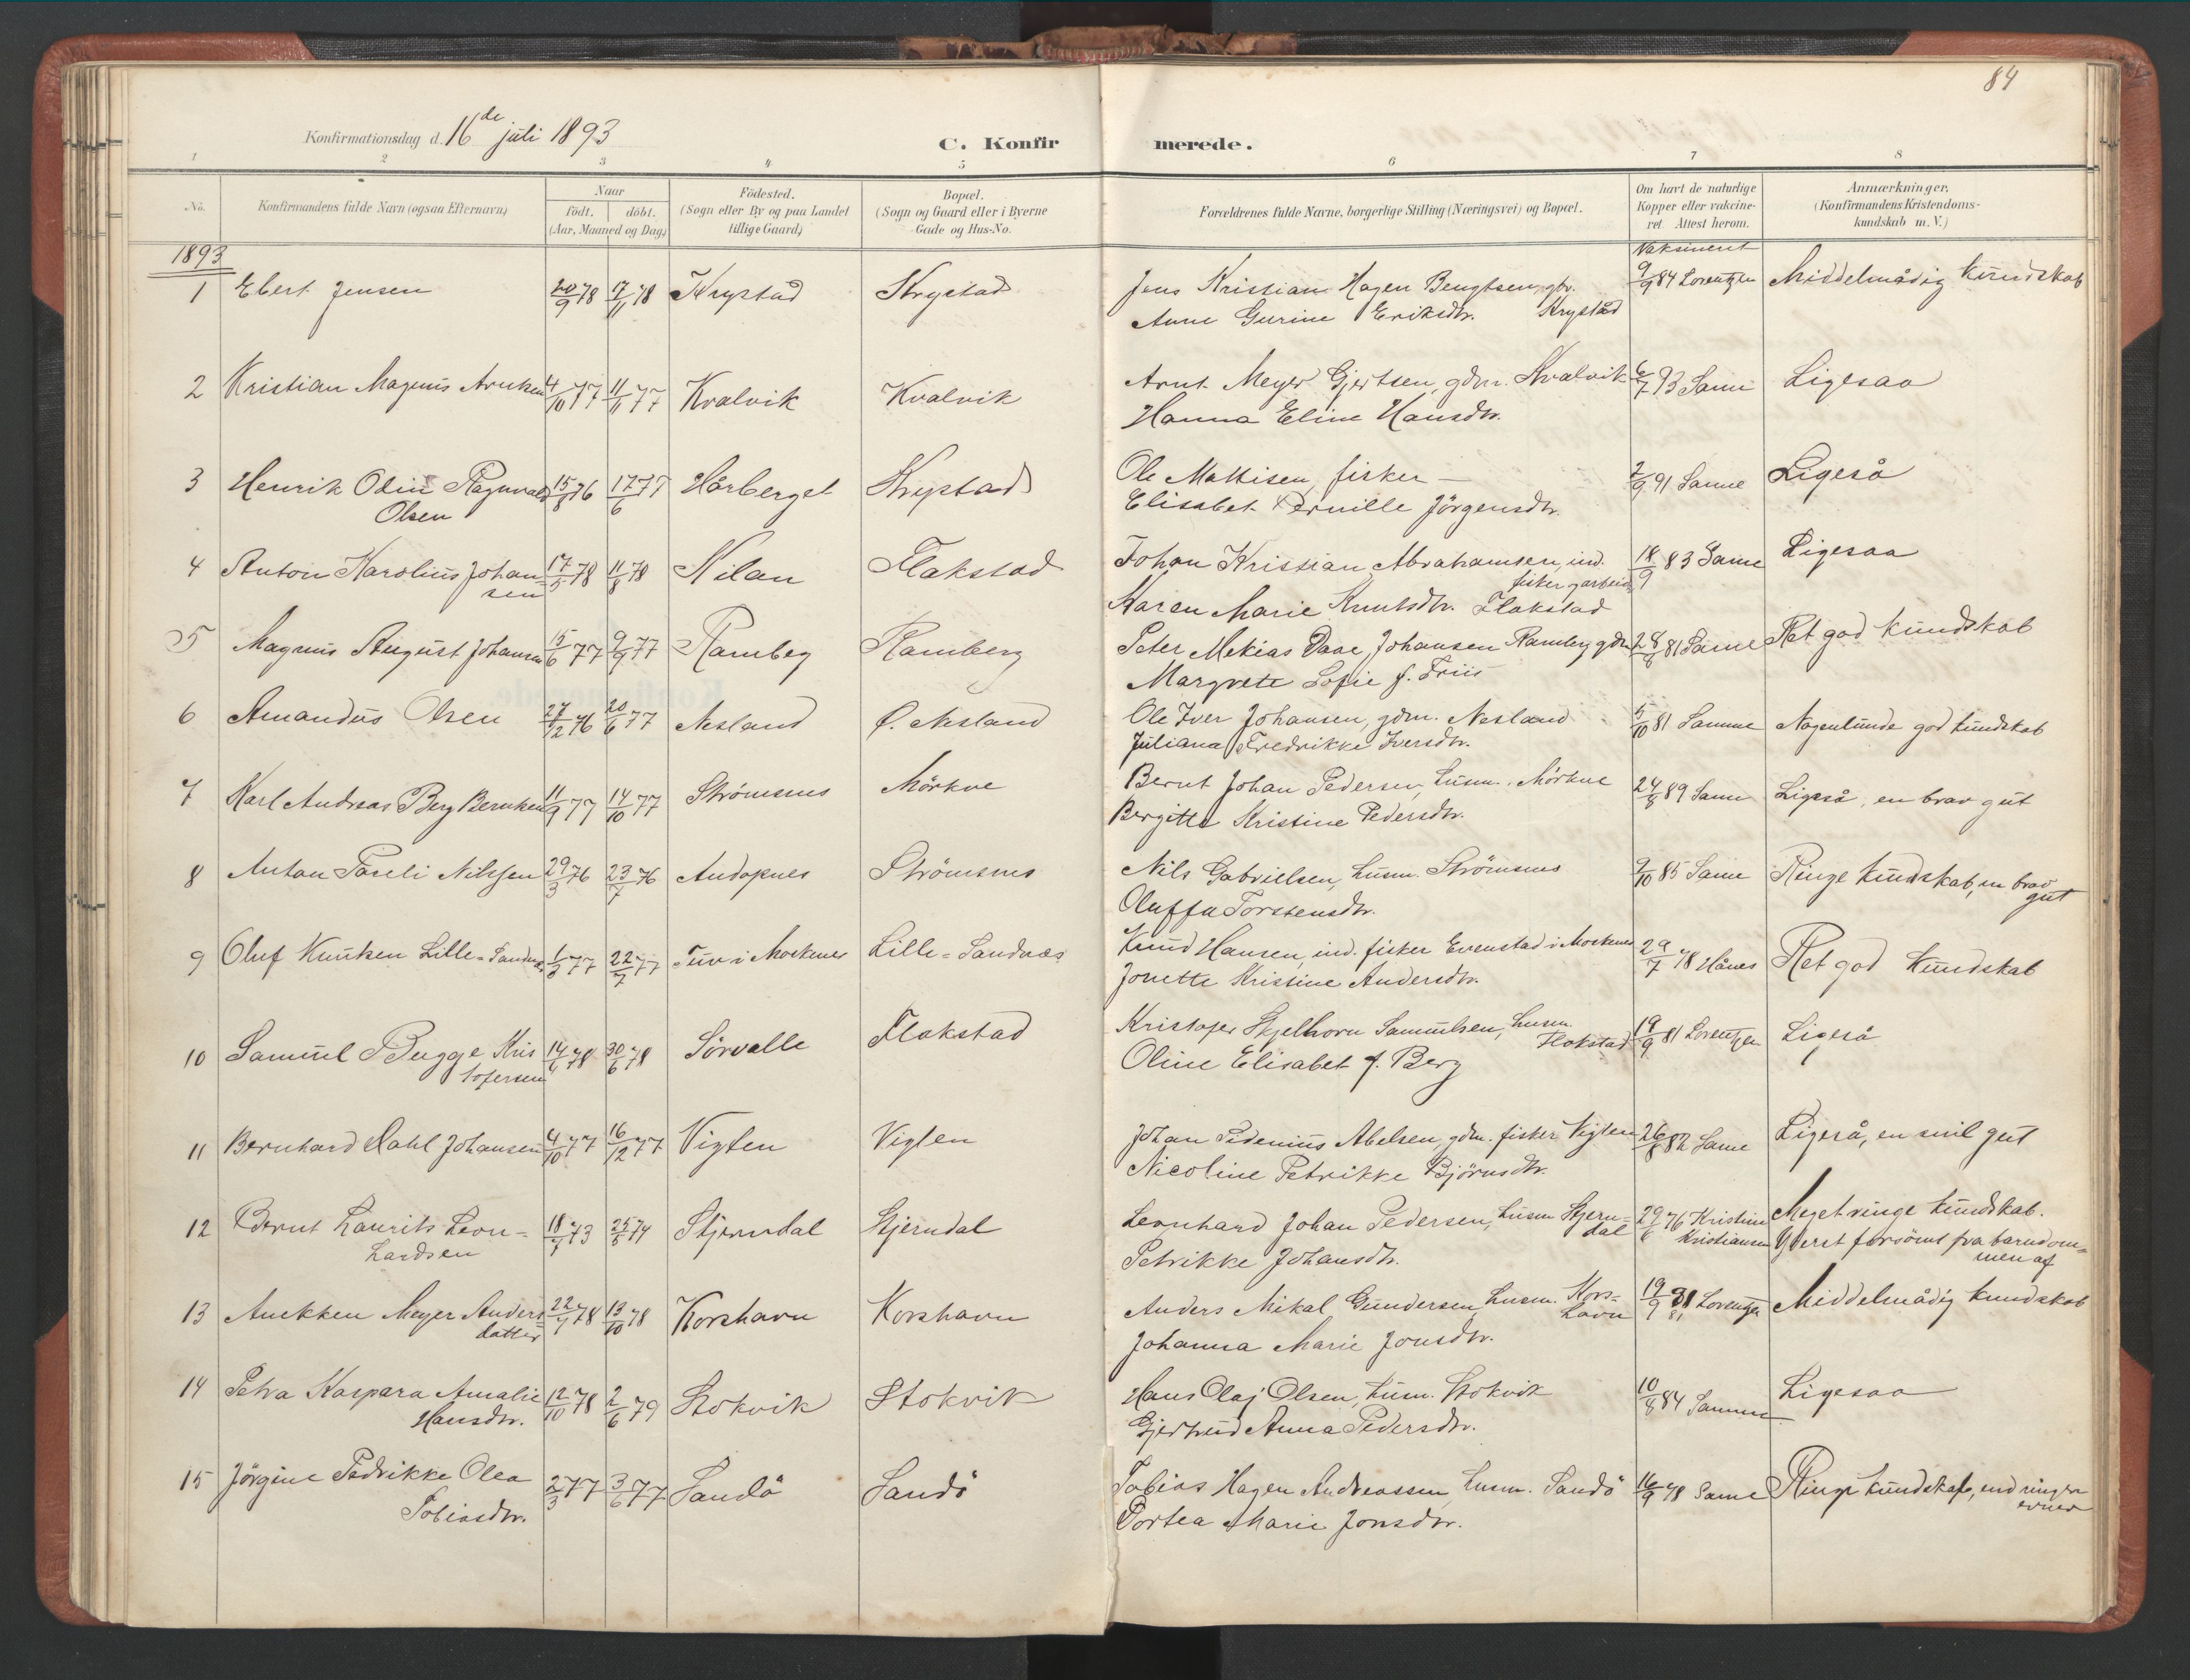 84
Konfirmationsdag d. 16de juli 1893
C. Konfir merede.
1 2 3 4 5 6 7 8
No. Konfirmandens fulde Navn (ogsaa Efternavn) Naar födt. döbt. (Aar, Maaned og Dag) Födested. (Sogn eller By og paa Landet tillige Gaard) Bopæl. (Sogn og Gaard eller i Byerne Gade og Hus-No. Forældrenes fulde Navne, borgerlige Stilling (Næringsvei) og Bopæl. Om havt de naturlige Kopper eller vakcineret. Attest herom. Anmærkninger. (Konfirmandens Kristendomskundskab m. V.)
1893 Vaksineret
1 Ebert Jensen 20/9 78 17/11 78 Krystad Krystad Jens Kristian Hagen Bengtsen, gbr. 9/9 84 Lorentzen Middelmådig kundskab
Anne Gurine Eriksdtr. Krystad
2 Kristian Magnus Arntsen 4/10 77 11/11 77 Kvalvik Kvalvik Arnt Meyer Gjertsen, gdm. Kvalvik 6/7 93 Samme Ligesaa
Hanna Eline Hansdtr.
3 Henrik Odin Ragnvald 15/8 76 17/6 77 Hårberget Krystad Ole Mattisen, fisker — 2/9 91 Samme Ligeså
Olsen Elisabet Pernille Jörgensdtr.
4 Anton Karolius Johan 17/5 78 11/8 78 Nilan Flakstad Johan Kristian Abrahamsen, ind. 18/9 83 Samme Ligesaa
sen fisker g arbeid
Karen Marie Knutsdtr. Flakstad
5 Magnus August Johansen 15/6 77 9/9 77 Ramberg Ramberg Peter Mekias Daae Johansen Ramberg gdm 28/8 81 Samme Ret god kundskab
Margrete Sofie f. Friis
6 Amandus Olsen 27/12 76 20/6 77 Nesland Ø. Nesland Ole Iver Johansen, gdm. Nesland 5/10 81 Samme Nogenlunde god kundskab
Juliana Fredrikke Iversdtr.
7 Karl Andreas Berg Berntsen 11/9 77 14/10 77 Strömsnes Mörkve Bernt Johan Pedersen, husm. Mörkve 24/8 89 Samme Ligeså, en brav gut
Bergitte Kristine Pedersdtr.
8 Anton Pareli Nilsen 29/3 76 23/7 76 Andopnes Strömsnes Nils Gabrielsen, husm. Strömsnes 9/10 85 Samme Ringe kundskab, en brav
gut
Oluffa Torstensdtr.
9 Oluf Knutsen Lille-Sandnes 1/3 77 22/7 77 Tuv i Moskenes Lille-Sandnæs Knud Hansen, ind. fisker Evenstad i Moskenes 29/7 78 Hånes Ret god kundskab
Jonette Kristine Andersdtr.
10 Samuel Bugge Kris 14/4 78 30/6 78 Sörvalle Flakstad Kristofer Skjelhorn Samuelsen, husm. 19/9 81 Lorentzen Ligeså
tofersen Flakstad
Oline Elisabet f. Berg
11 Bernhard Dahl Johansen 4/10 77 16/12 77 Vigten Vigten Johan Pedenius Abelsen, gdm. fisker Vigten 26/8 82 Samme Ligeså, en snil gut
Nicoline Petrikke Björnsdtr.
12 Bernt Laurits Leon- 18/7 73 25/5 74 Stjerndal Stjerndal Leonhard Johan Pedersen, husm Stjern- 29/6 76 Kristine Meget ringe kundskab.
hardsen dal Kristiansen Yderst forsömt fra barndom-
men af
Petrikke Johansdtr.
13 Anekken Meyer Anders 22/7 78 13/10 78 Korshavn Korshavn Anders Mikal Gundersen, husm. Kors- 19/9 81 Lorentzen Middelmådig kundskab
datter havn 81
Johanna Marie Jonsdtr.
14 Petra Kaspara Amalie 12/10 78 2/6 79 Stokvik Stokvik Hans Olaj Olsen, husm. Stokvik 10/8 84 Samme Ligesaa
Hansdtr. Gjertrud Anna Pedersdtr.
15 Jörgine Pedrikke Olea 2/3 77 3/6 77 Sandö Sandö Tobias Hagen Andreassen husm. Sandö 16/9 78 Samme Ringe kundskab, end ringere
evner
Tobiasdtr. Dortea Marie Jonsdtr.